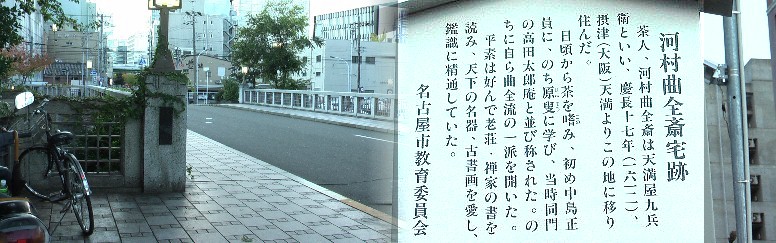 河村曲全斎宅跡
茶人、河村曲全斎は天満屋九兵
衛といい、慶長十七年（一六一二）、
摂津（大阪）天満よりこの地に移り
住んだ。
日頃から茶を嗜み、初め中島正
員に、のち原叟に学び、当時同門
の高田太郎庵と並び称された。の
ちに自ら曲全流の一派を開いた。
平素は好んで老荘、禅家の書を
読み、天下の名器、古書画を愛し、
鑑識に精通していた。
名古屋市教育委員会